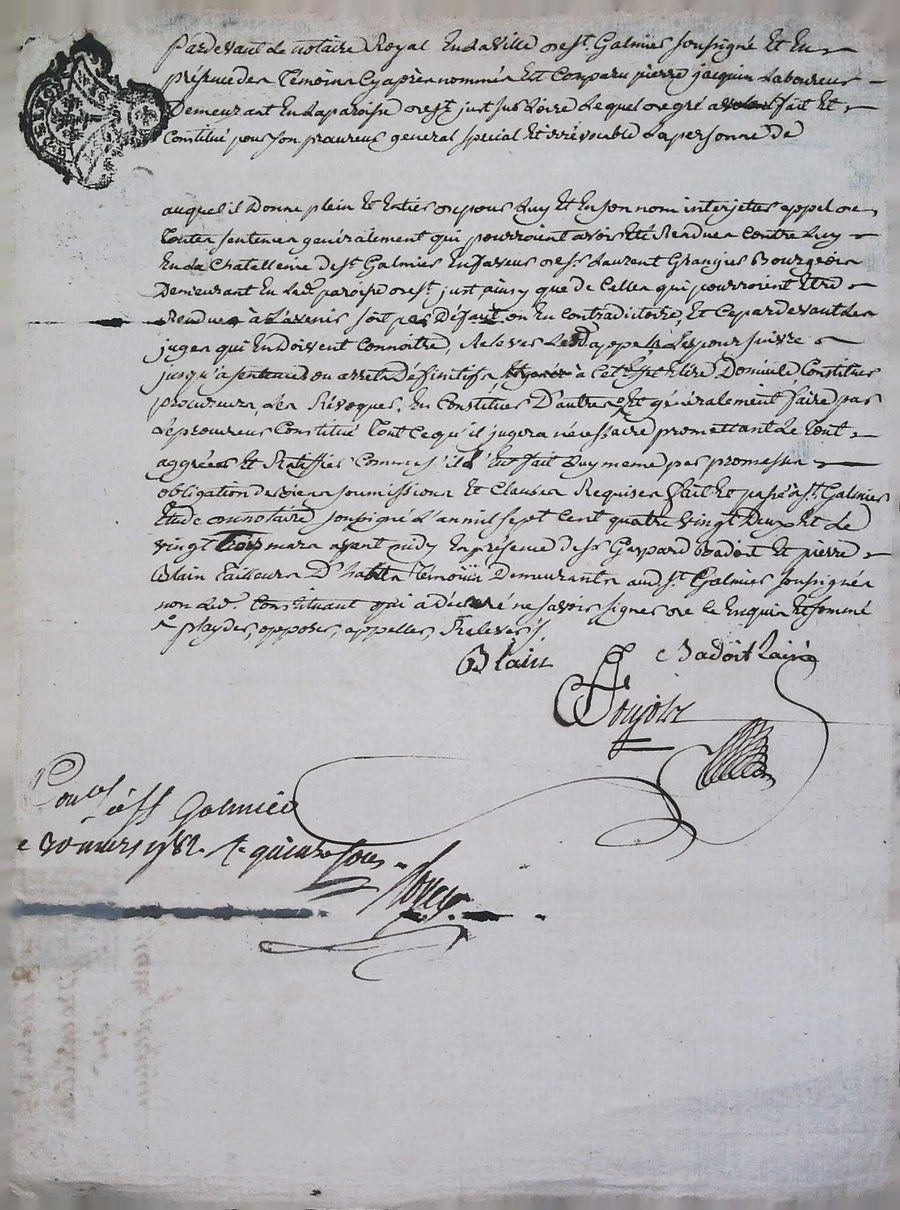 Pardevant Le notaire Royal En La Ville de st. Galmier soussigné Et En
présence des Témoins Cy après nommés Est Comparu pierre jacquin Laboureur
Demeurant En La paroisse de st just sur Loire Lequel de gré a fait Et
Constitué pour son procureur general special Et irrévocable La personne de
auquel il Donne plein Et Entier de pour Luy Et En son nom interjetter appel de
Toutes sentences généralement qui pourroient avoir Eté Rendues Contre Luy
En La Chatellenie de st. Galmier En faveur de sr. Laurent Grangier Bourgeois
Demeurant En Lad. paroisse de st just, ainsy que de Celles qui pourroient Etre
Rendues à L'avenir soit par Défaut ou En Contradictoire, Et Ce pardevant Les
juges qui En doivent Connoitre, Relever Lesd. appels Les poursuivre
jusqu'a sentences ou arrets Définitifs à Cet Effet Elire Domicile Constituer
procureurs, Les Révoquer, En Constituer D'autres Et généralement faire par
Le procureur Constitué Tout Ce qu'il jugera nécessaire promettant Le Tout
aggréer Et Ratiffier Comme s'il L'eut fait Luy meme par promesse
obligation de biens soumissions Et Clauses Requises fait Et passé à st. Galmier
Etude du notaire soussigné L'an mil sept Cent quatre vingt Deux Et Le
vingt Trois mars avant midy En présence de sr Gaspard Badoit Et pierre
Blain Tailleurs D'habits Témoins Demeurants aud. st. Galmier soussignés
non Led. Constituant qui a Déclaré ne savoir signer de Ce Enquis Et sommé
playder, opposer, appeller, Relever
Blain Badoit Lainé
Ponjolz
à st Galmier
30 mars 1782. quinze sous